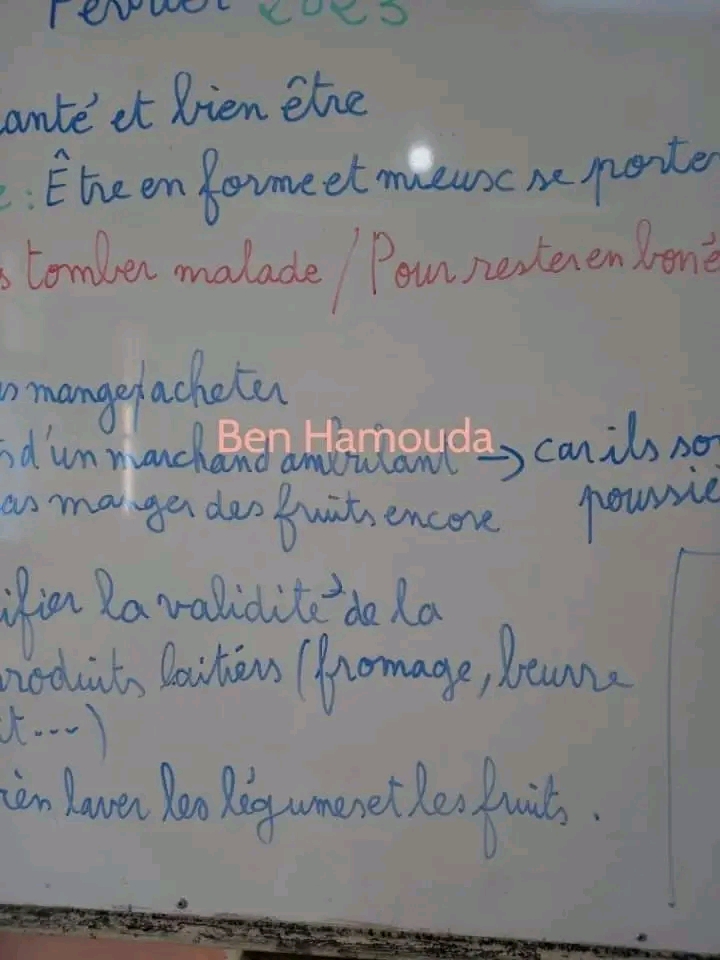 Février 2023
anté et bien être
e : Être en forme et mieux se porter
s tomber malade / Pour rester en bon é
s manger/acheter
s d'un marchand ambulant → car ils so
Ben Hamouda
as manger des fruits encore poussié
ifier la validité de la
roduits laitiers (fromage, beurre
it...)
ien laver les légumes et les fruits.